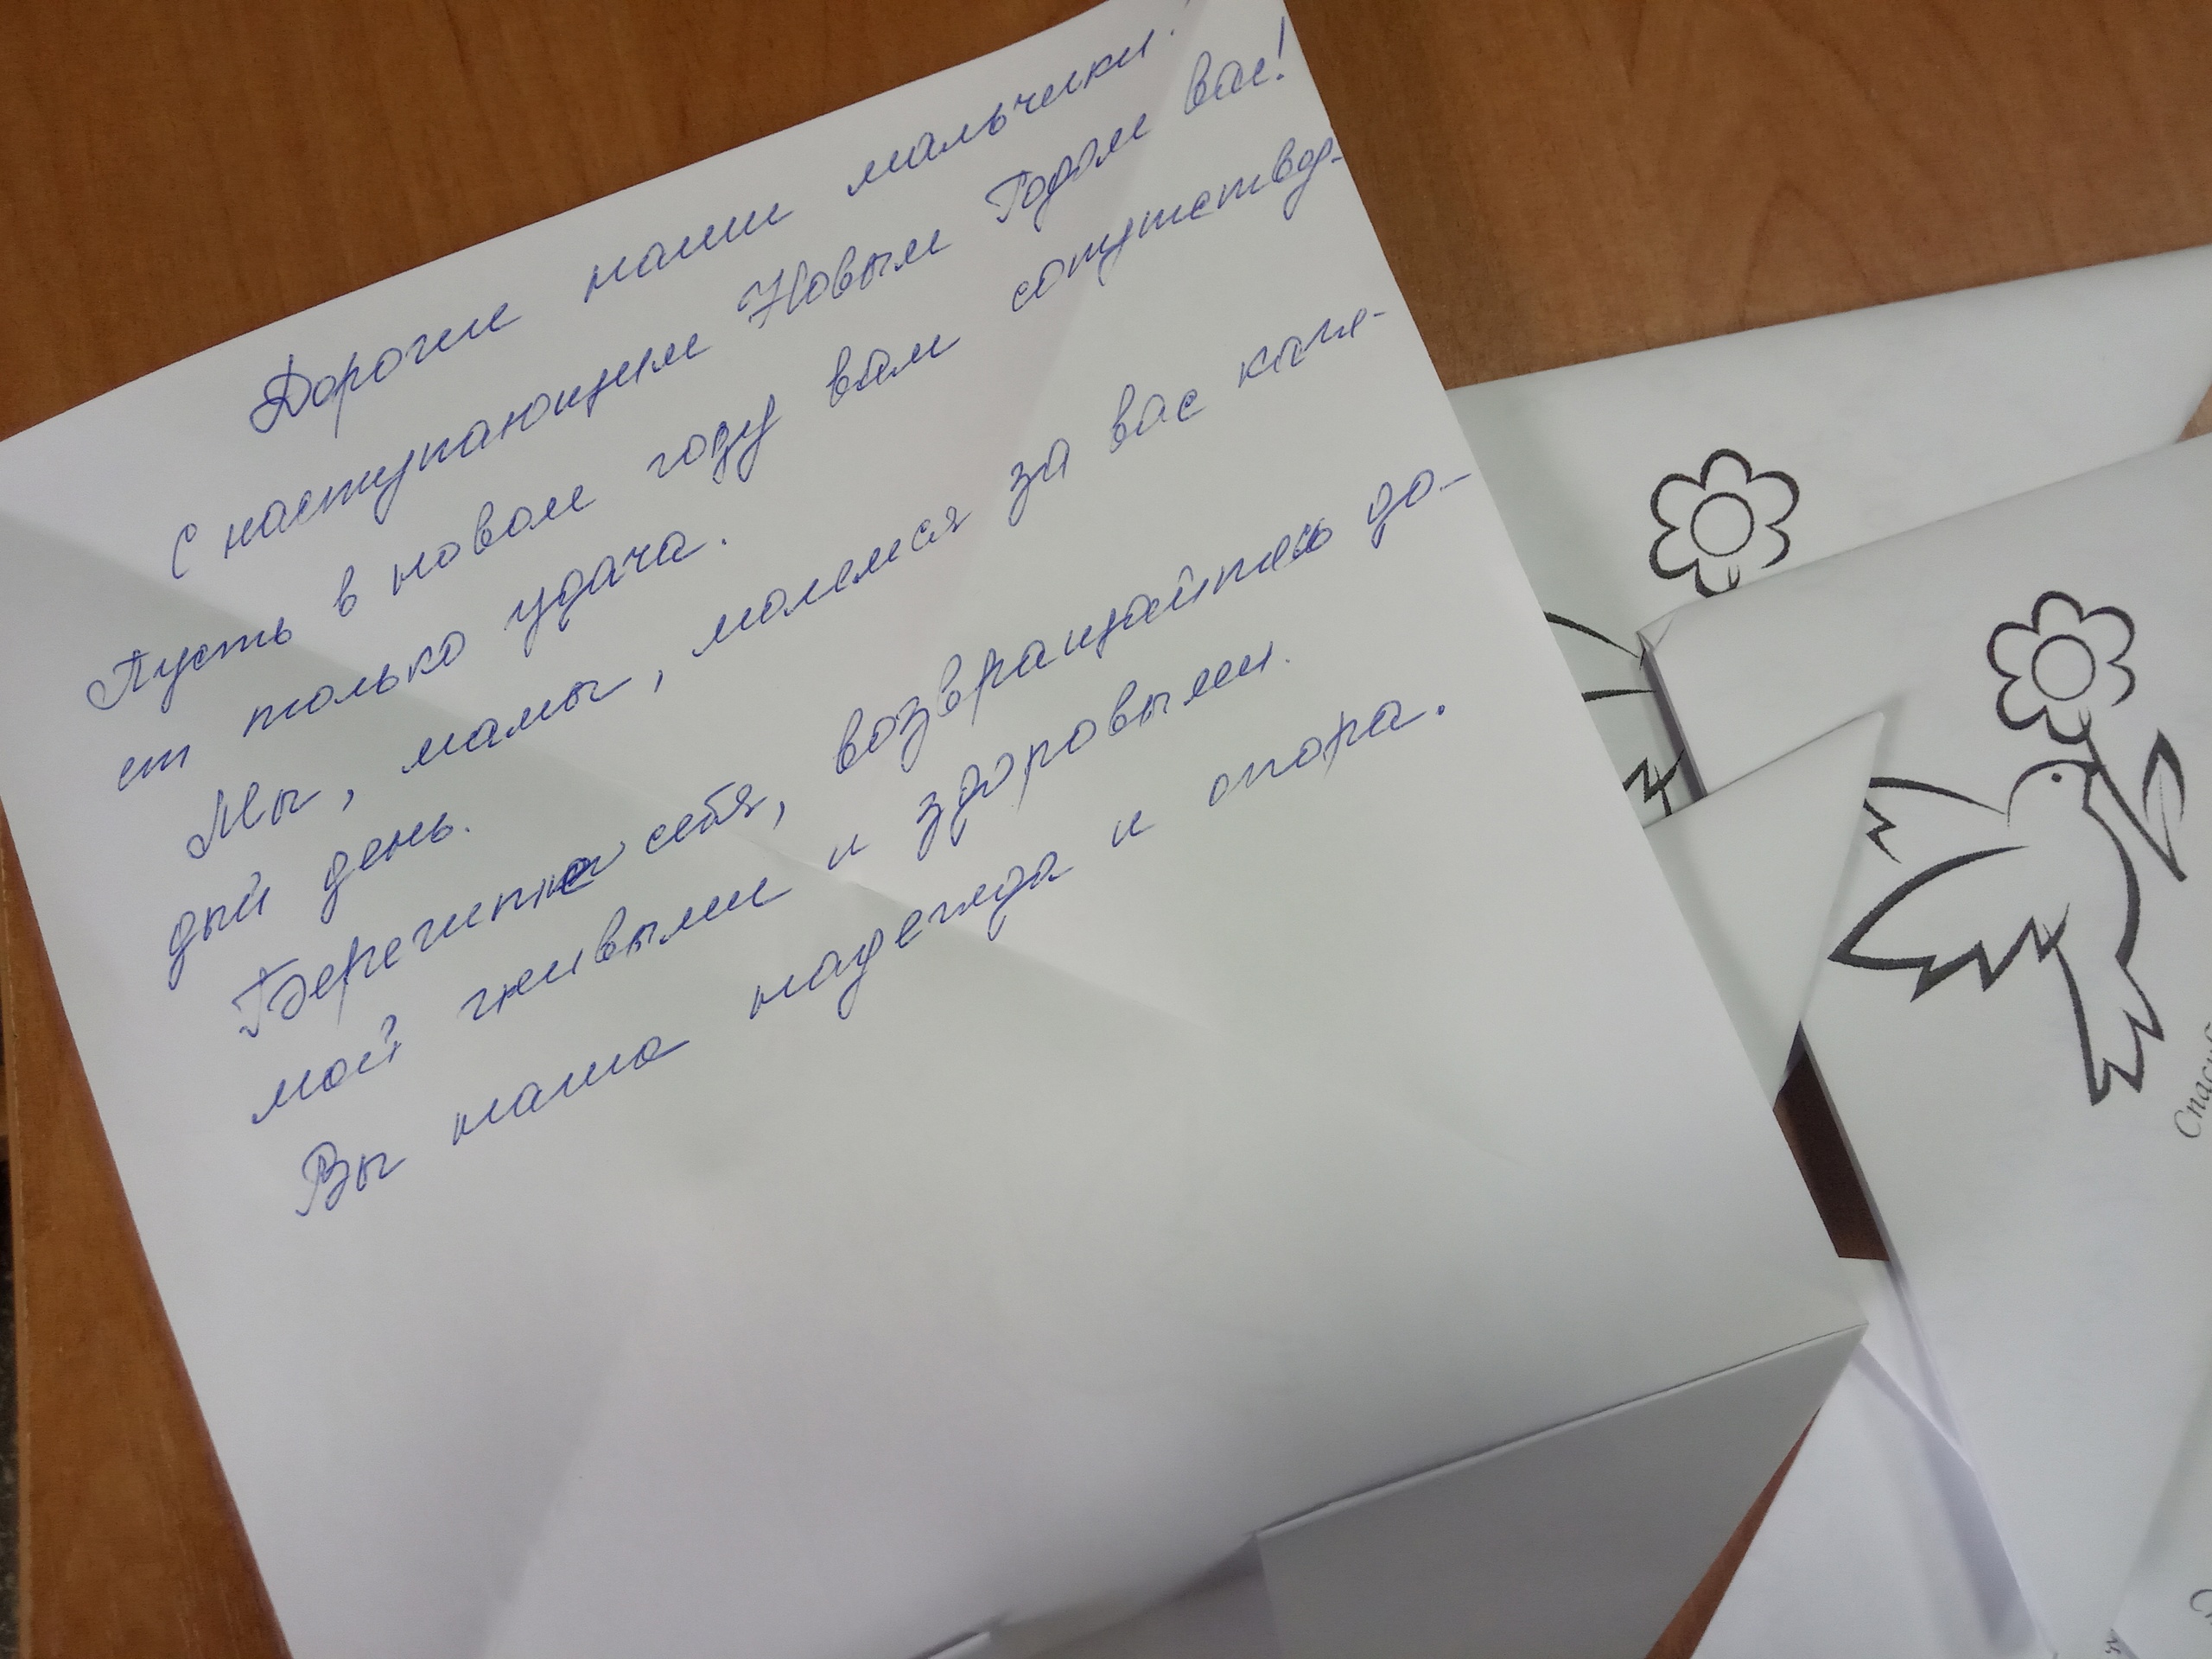 Дорогие наши мальчики.
С наступающим Новым Годом вас!
Пусть в новом году вам сопутствор-
ет только удача.
Мы, мамы, молемся за вас каж-
дый день.
Берегите себя, возвращайтесь до-
мой живыми и здоровыми.
Вы наша надежда и опора.